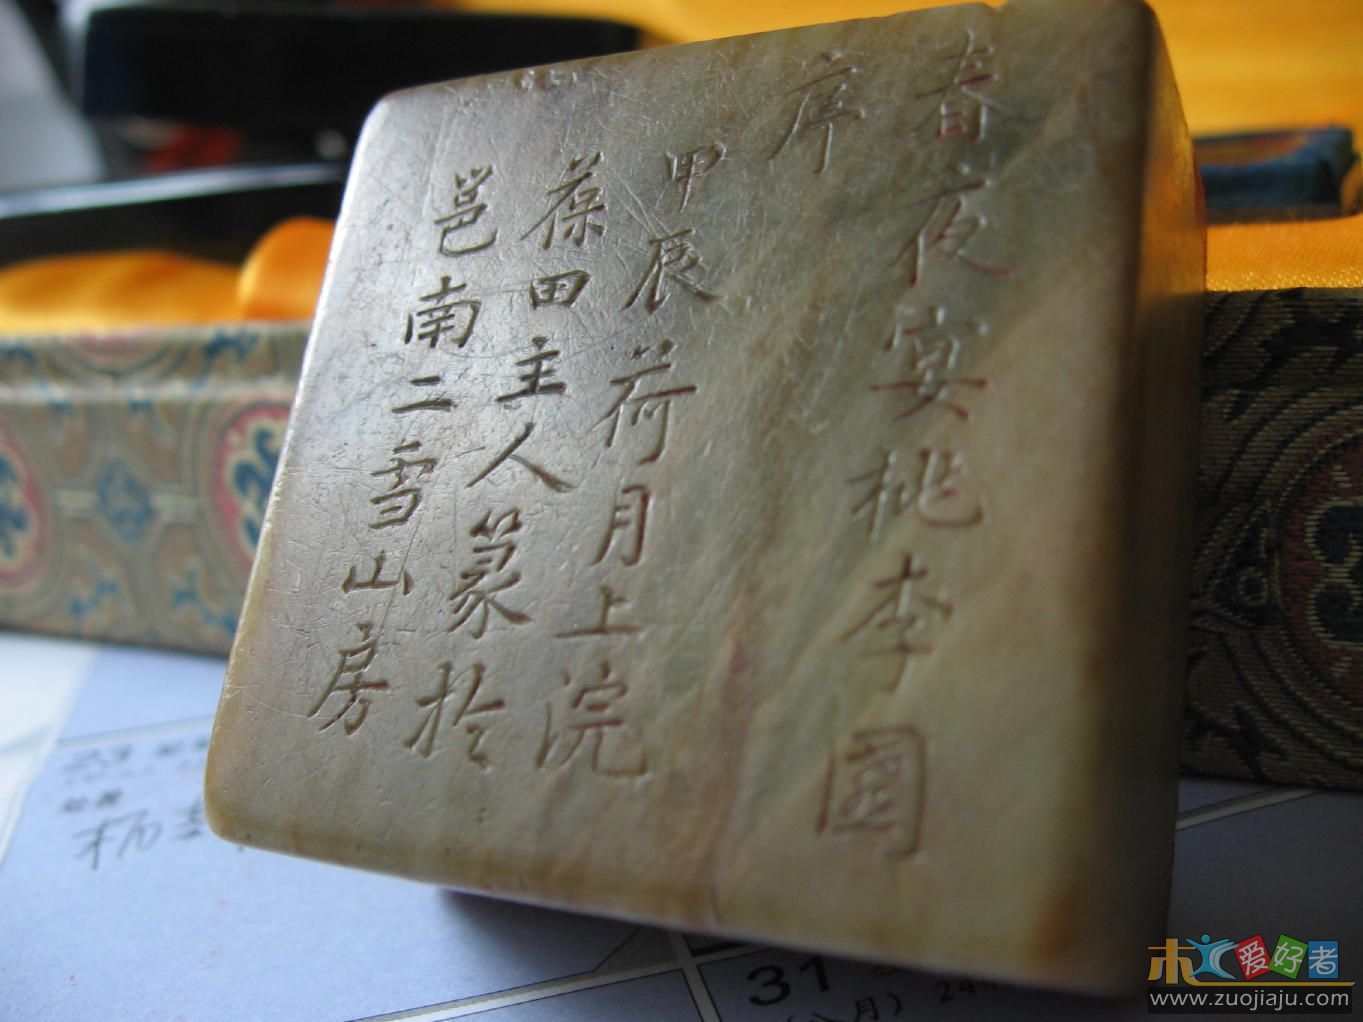 春夜宴桃李園
序
甲辰荷月上浣
葆田主人篆於
邕南二雪山房
31
爱好者
www.zuojiaju.com